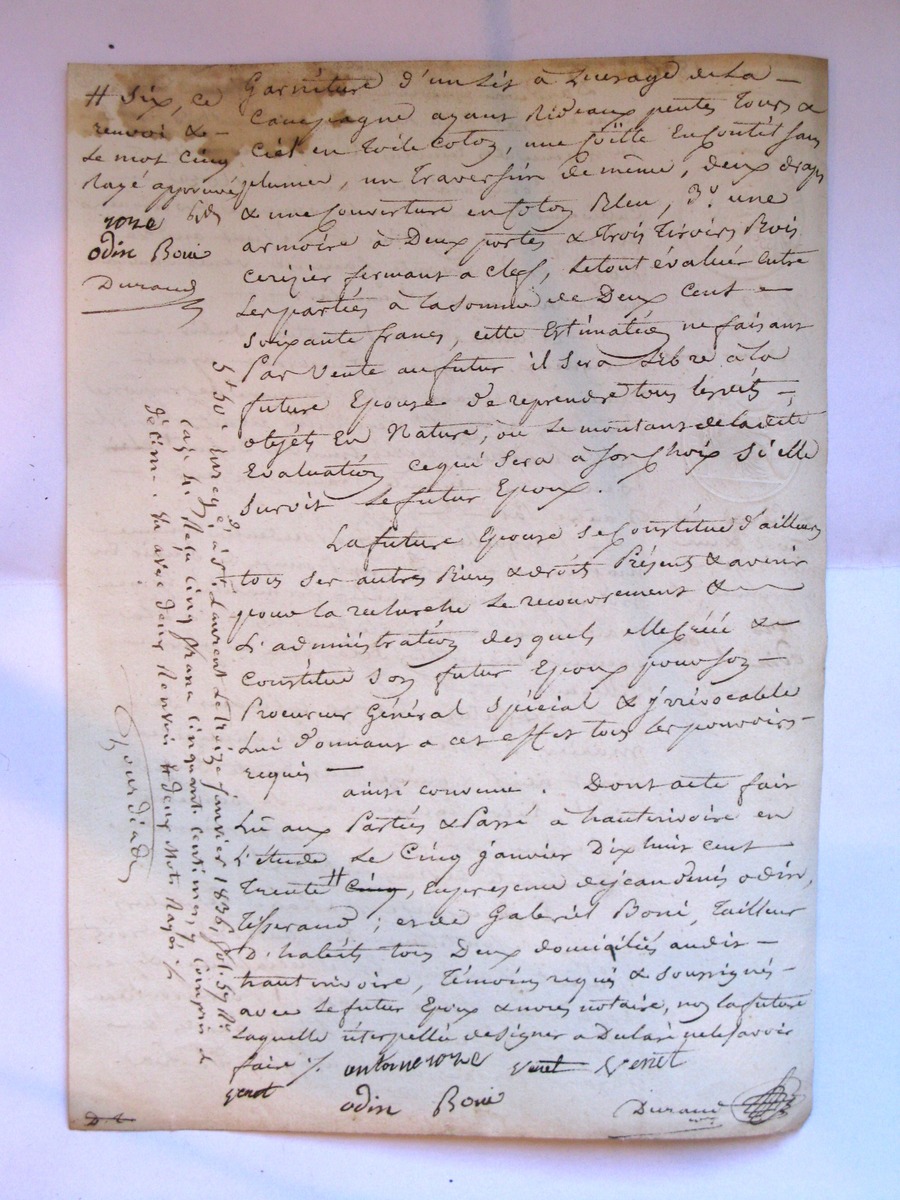 # Six, ce
renvoi &
Le mot Cinq
Rayé approuvé
roze
odin Boni
Durand
Garniture d'un Lit à Lusage de La
Campagne ayant Rideaux pentes Tours &
Ciel en Toile Coton, une Coitte en Coutit sans
plumes, un Traversin de même, deux draps
& une Couverture en Coton Bleu, 3° une
armoire à Deux portes & Trois Tiroirs Bois
Cerizier fermant a Clef, Le tout evalué entre
Les parties à la Somme de Deux Cent
Soixante francs, cette Estimation ne faisant
Pas Vente au futur il Sera Libre à la
future Epouse de reprendre tous lesdits
objets En Nature, ou Le montant de ladite
Evaluation ce qui Sera à son Choix Si elle
Survit Le futur Epoux.
La future Epouse se Constitue d'ailleurs
tous Ses autres Biens & droits Présents & avenir
pour la recherche Le recouvrement &
L'administration desquels elle Créé &
Constitue Son futur Epoux pour Son
Procureur Général Spécial & yrrévocable
Lui donnant a cet effet tous les pouvoirs
requis
ainsi convenu. Dont acte fait
Lu aux Parties & Passé à hauterivoire en
L'étude Le Cinq janvier Dix huit Cent
Trente # Cinq, En presence de jean denis odin,
Tisserand; et de Gabriel Boni, Tailleur
D'habits tous Deux domiciliés audit
hauterivoire, Témoins requis & Soussignés
avec Le futur Epoux & nous notaire, non la future
Laquelle interpellée de signer a Déclaré ne le savoir
faire ./. antoine roze Venet Venet
Venet
odin Boni
Durand
Enregé à St Laurent Le treize janvier 1836, fol. 59 Ro
Case 4. Reçu cinq franc cinquante centimes, y Compris le
décime. Vu avec deux Renvois & deux Mots Rayés ./.